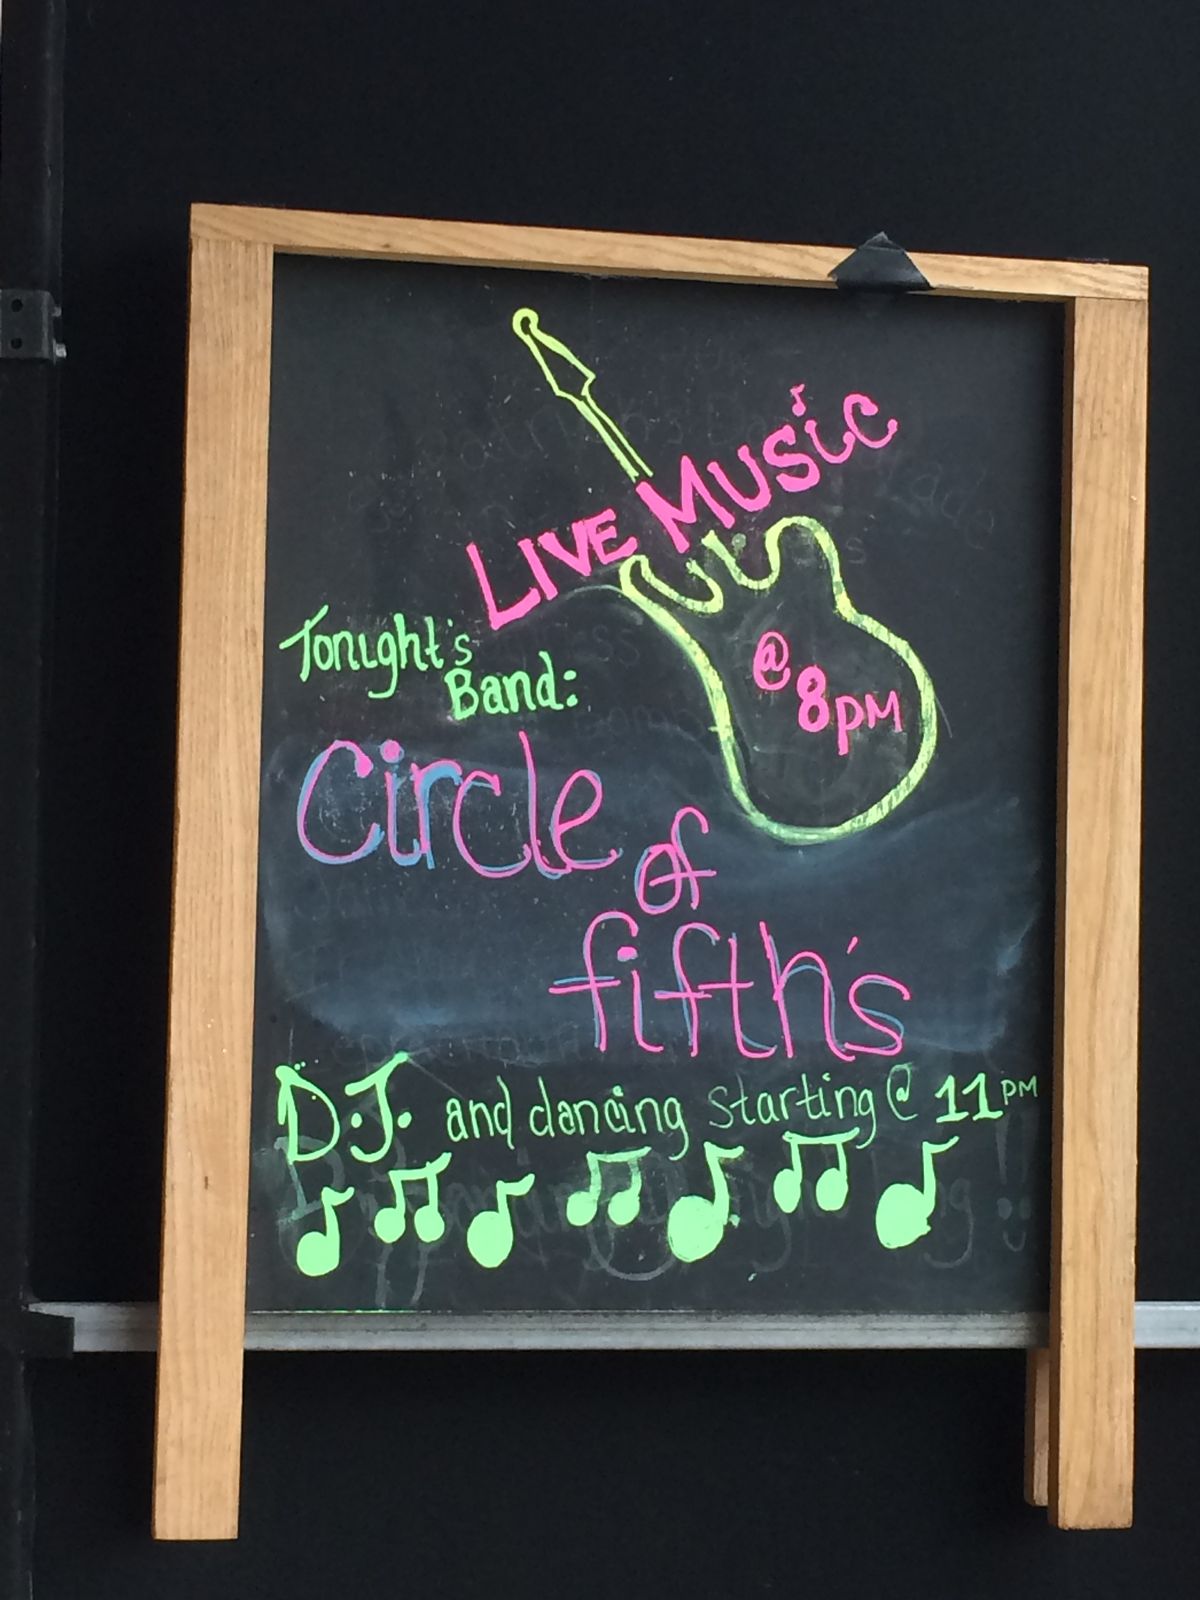 LIVE MUSiC
@ 8PM
Tonight's
Band:
Circle
of
fifth's
D.J. and dancing starting @ 11PM